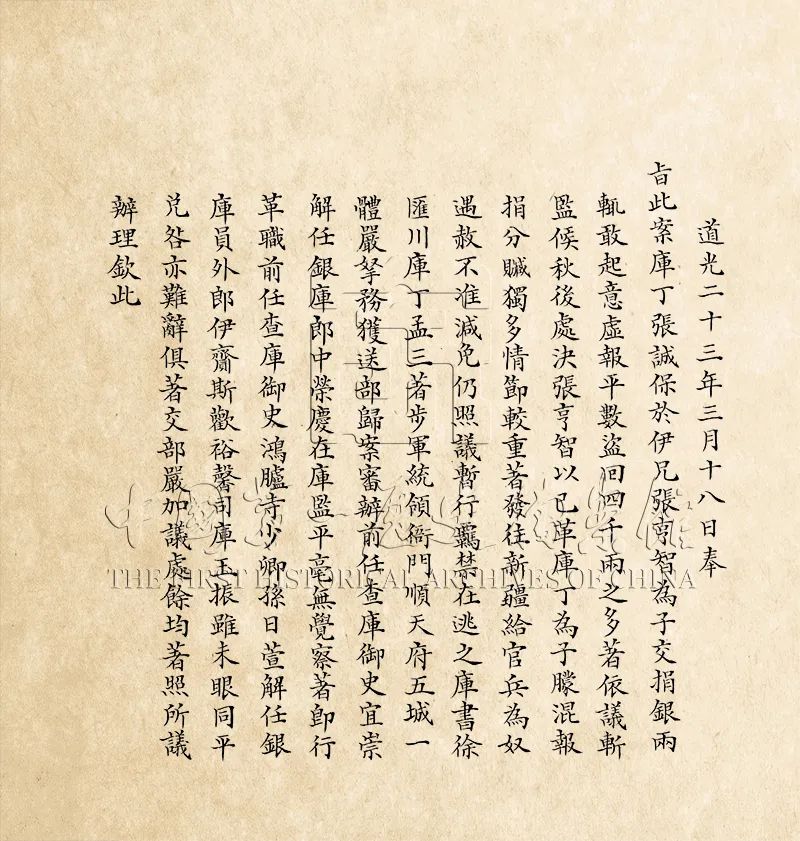 道光二十三年三月十八日奉
旨此案庫丁張誠保於伊兄張亨智為子交捐銀兩
輒敢起意虛報平數盜回四千兩之多著依議斬
監候秋後處決張亨智以已革庫丁為子朦混報
捐分贓獨多情節較重著發往新疆給官兵為奴
遇赦不准減免仍照議暫行羈禁在逃之庫書徐
匯川庫丁孟三著步軍統領衙門順天府五城一
體嚴拏務獲送部歸案審辦前任查庫御史宜崇
解任銀庫郎中榮慶在庫監平毫無覺察著即行
革職前任查庫御史鴻臚寺少卿孫日萱解任銀
庫員外郎伊齋斯歡裕馨司庫玉振雖未眼同平
兌咎亦難辭俱著交部嚴加議處餘均著照所議
辦理欽此
THE FIRST HISTORICAL ARCHIVES OF CHINA